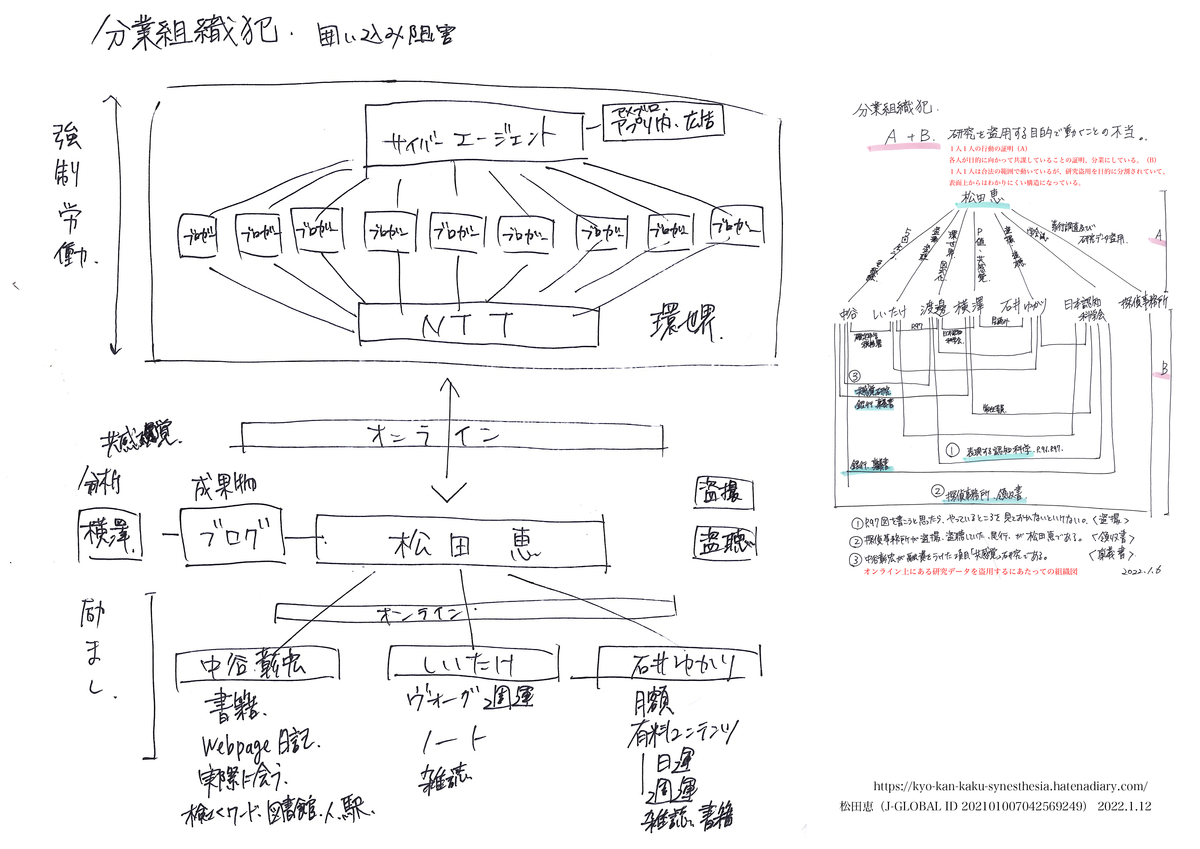 分業組織犯. 囲い込み阻害
強制労働.
サイバーエージェント
アメブロ.
アプリ内.広告
ブロガー ブロガー ブロガー ブロガー ブロガー ブロガー ブロガー ブロガー ブロガー
NTT
環世界.
オンライン
分析
横澤.
成果物
ブログ
松田 恵
盗撮
盗聴
励まし.
オンライン
中谷彰宏
書籍.
Webpage 日記.
実際に会う.
図書館.人.駅.
しいたけ
ヴォーグ 週運
ノート
雑誌
石井ゆかり
月額
有料コンテンツ
日運
週運
雑誌、書籍
分業組織犯.
A + B. 研究を盗用する目的で動くことの不当。.
1人1人の行動の証明（A）
各人が目的に向かって共謀していることの証明、分業にしている。（B）
1人1人は合法の範囲で動いているが、研究盗用を目的に分割されていて、
表面上からはわかりにくい構造になっている。
松田恵
素行調査及び
研究データ盗用.
A
中谷 しいたけ 渡邊 横澤 石井ゆかり 日本認知科学会 探偵事務所
R97
B
③
共感覚研究
① 表現する認知科学. R96.R97.
② 探偵事務所.領収書
① R97図を書こうと思ったら、やっているところを見ておかないといけない。〈盗撮〉
② 探偵事務所が盗撮、盗聴していた、が松田恵である。〈領収書〉
③ 中谷彰宏が融資をうけた項目「共感覚」研究である。
オンライン上にある研究データを盗用するにあたっての組織図
2022.1.6
https://kyo-kan-kaku-synesthesia.hatenadiary.com/
松田恵（J-GLOBAL ID 202101007042569249） 2022.1.12